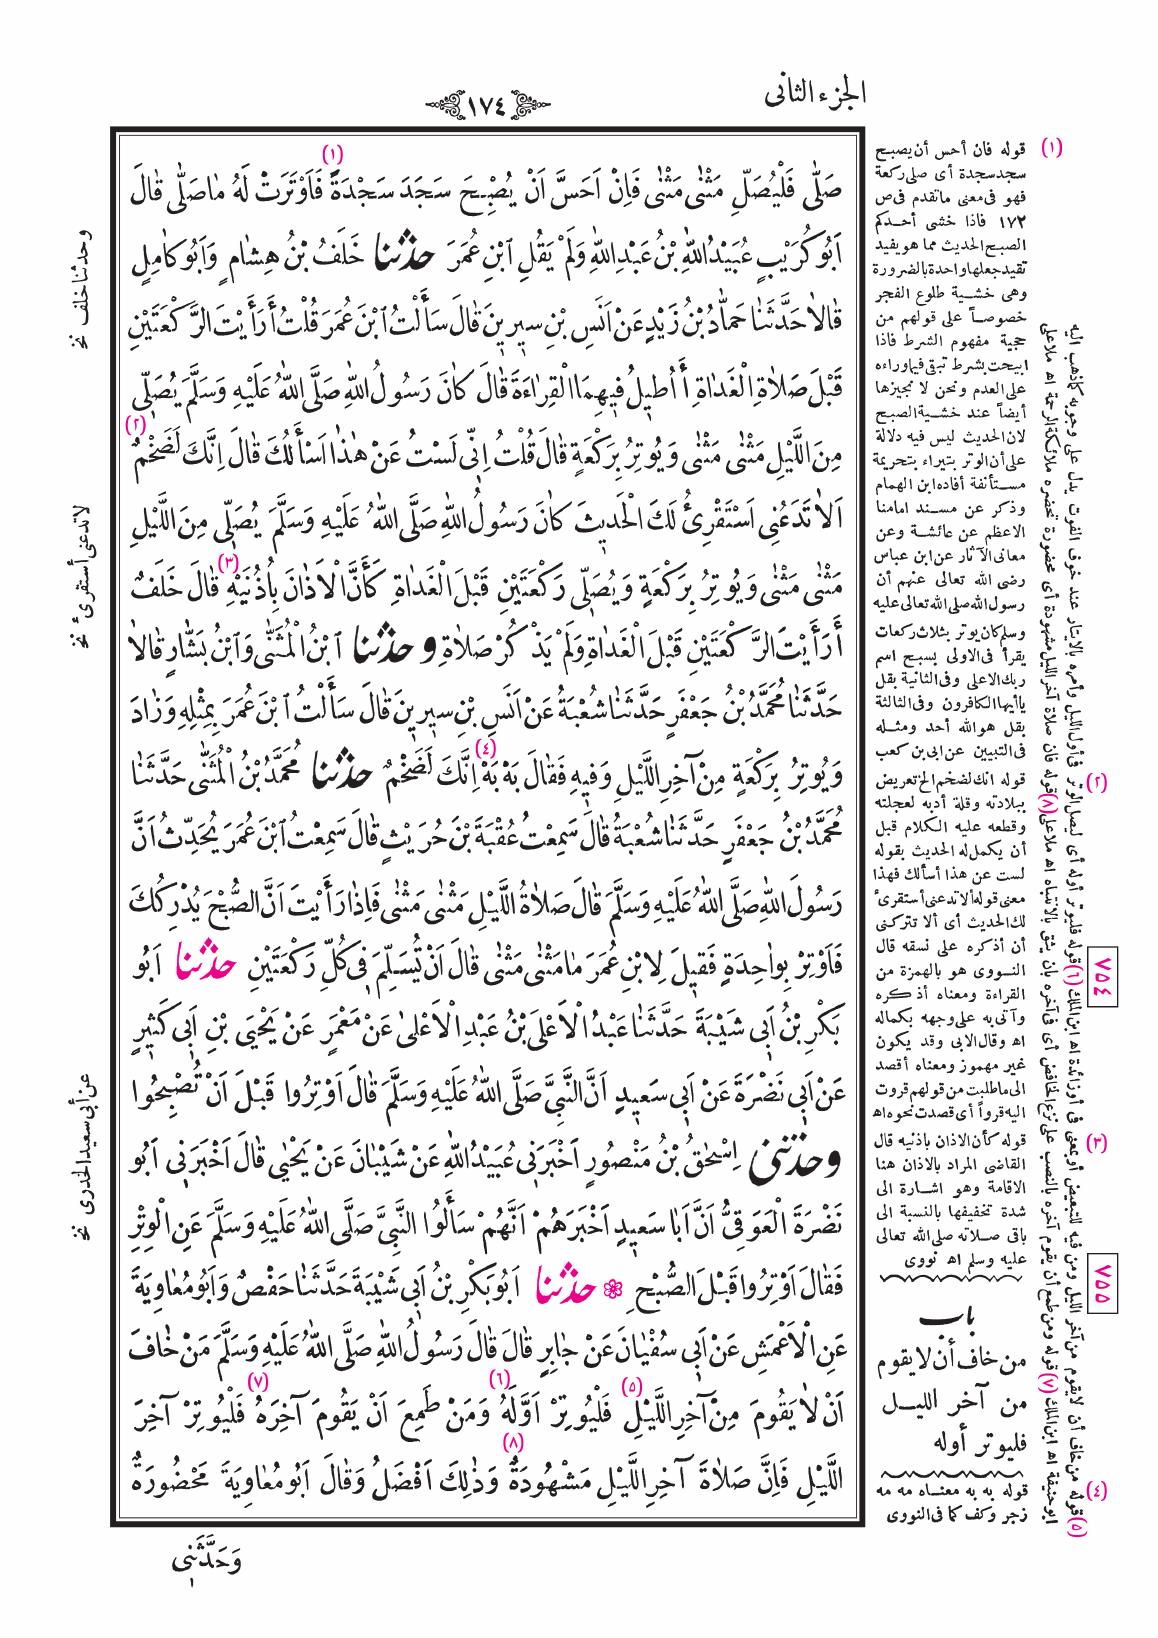 الجزء الثانى
١٧٤
صَلَّى فَلْيُصَلِّ مَثْنٰى مَثْنٰى فَاِنْ اَحَسَّ اَنْ يُصْبِحَ سَجَدَ سَجْدَةً (١) فَاَوْتَرَتْ لَهُ مَاصَلّٰى قَالَ
اَبُوكُرَيْبٍ عُبَيْدُاللّٰهِ بْنُ عَبْدِاللّٰهِ وَلَمْ يَقُلِ ابْنِ عُمَرَ حدثنا خَلَفُ بْنُ هِشَامٍ وَاَبُوكَامِلٍ
قَالاَ حَدَّثَنَا حَمَّادُ بْنُ زَيْدٍ عَنْ اَنَسِ بْنِ سِيرِينَ قَالَ سَأَلْتُ ابْنَ عُمَرَ قُلْتُ أَرَأَيْتَ الرَّكْعَتَيْنِ
قَبْلَ صَلاَةِ الْغَدَاةِ أَاُطِيلُ فِيهِمَا الْقِرَاءَةَ قَالَ كَانَ رَسُولُ اللّٰهِ صَلَّى اللّٰهُ عَلَيْهِ وَسَلَّمَ يُصَلِّى
مِنَ اللَّيْلِ مَثْنٰى مَثْنٰى وَيُوتِرُ بِرَكْعَةٍ قَالَ قُلْتُ اِنِّى لَسْتُ عَنْ هٰذَا اَسْأَلُكَ قَالَ اِنَّكَ لَضَخْمٌ (٢)
اَلاَ تَدَعُنِى اَسْتَقْرِئُ لَكَ الْحَدِيثَ كَانَ رَسُولُ اللّٰهِ صَلَّى اللّٰهُ عَلَيْهِ وَسَلَّمَ يُصَلِّى مِنَ اللَّيْلِ
مَثْنٰى مَثْنٰى وَيُوتِرُ بِرَكْعَةٍ وَيُصَلِّى رَكْعَتَيْنِ قَبْلَ الْغَدَاةِ كَأَنَّ الْاَذَانَ بِأُذُنَيْهِ (٣) قَالَ خَلَفٌ
أَرَأَيْتَ الرَّكْعَتَيْنِ قَبْلَ الْغَدَاةِ وَلَمْ يَذْكُرْ صَلاَةِ وحدثنا ابْنُ الْمُثَنّٰى وَابْنُ بَشَّارٍ قَالاَ
حَدَّثَنَا مُحَمَّدُ بْنُ جَعْفَرٍ حَدَّثَنَا شُعْبَةُ عَنْ اَنَسِ بْنِ سِيرِينَ قَالَ سَأَلْتُ ابْنَ عُمَرَ بِمِثْلِهِ وَزَادَ
وَيُوتِرُ بِرَكْعَةٍ مِنْ آخِرِ اللَّيْلِ وَفِيهِ فَقَالَ بَهْ بَهْ (٤) اِنَّكَ لَضَخْمٌ حدثنا مُحَمَّدُ بْنُ الْمُثَنّٰى حَدَّثَنَا
مُحَمَّدُ بْنُ جَعْفَرٍ حَدَّثَنَا شُعْبَةُ قَالَ سَمِعْتُ عُقْبَةَ بْنَ حُرَيْثٍ قَالَ سَمِعْتُ ابْنَ عُمَرَ يُحَدِّثُ اَنَّ
رَسُولَ اللّٰهِ صَلَّى اللّٰهُ عَلَيْهِ وَسَلَّمَ قَالَ صَلاَةُ اللَّيْلِ مَثْنٰى مَثْنٰى فَاِذَا رَأَيْتَ اَنَّ الصُّبْحَ يُدْرِكُكَ
فَاَوْتِرْ بِوَاحِدَةٍ فَقِيلَ لِابْنِ عُمَرَ مَا مَثْنٰى مَثْنٰى قَالَ اَنْ تُسَلِّمَ فِى كُلِّ رَكْعَتَيْنِ حدثنا اَبُو
بَكْرِ بْنُ اَبِى شَيْبَةَ حَدَّثَنَا عَبْدُ الْاَعْلَى بْنُ عَبْدِ الْاَعْلىٰ عَنْ مَعْمَرٍ عَنْ يَحْيَى بْنِ اَبِى كَثِيرٍ
عَنْ اَبِى نَضْرَةَ عَنْ اَبِى سَعِيدٍ اَنَّ النَّبِىَّ صَلَّى اللّٰهُ عَلَيْهِ وَسَلَّمَ قَالَ اَوْتِرُوا قَبْلَ اَنْ تُصْبِحُوا
وحدثنى اِسْحٰقُ بْنُ مَنْصُورٍ اَخْبَرَنِى عُبَيْدُ اللّٰهِ عَنْ شَيْبَانَ عَنْ يَحْيٰى قَالَ اَخْبَرَنِى اَبُو
نَضْرَةَ الْعَوَقِىُّ اَنَّ اَبَا سَعِيدٍ اَخْبَرَهُمْ اَنَّهُمْ سَأَلُوا النَّبِىَّ صَلَّى اللّٰهُ عَلَيْهِ وَسَلَّمَ عَنِ الْوِتْرِ
فَقَالَ اَوْتِرُوا قَبْلَ الصُّبْحِ حدثنا اَبُو بَكْرِ بْنُ اَبِى شَيْبَةَ حَدَّثَنَا حَفْصٌ وَاَبُو مُعَاوِيَةَ
عَنِ الْاَعْمَشِ عَنْ اَبِى سُفْيَانَ عَنْ جَابِرٍ قَالَ قَالَ رَسُولُ اللّٰهِ صَلَّى اللّٰهُ عَلَيْهِ وَسَلَّمَ مَنْ خَافَ
اَنْ لاَ يَقُومَ مِنْ آخِرِ اللَّيْلِ (٥) فَلْيُوتِرْ اَوَّلَهُ (٦) وَمَنْ طَمِعَ اَنْ يَقُومَ آخِرَهُ (٧) فَلْيُوتِرْ آخِرَ
اللَّيْلِ فَاِنَّ صَلاَةَ آخِرِ اللَّيْلِ مَشْهُودَةٌ (٨) وَذٰلِكَ اَفْضَلُ وَقَالَ اَبُو مُعَاوِيَةَ مَحْضُورَةٌ
وَحَدَّثَنِى
(١) قوله فان أحس أن يصبح
سجد سجدة أى صلى ركعة
فهو فى معنى ماتقدم فى ص
١٧٢ فاذا خشى أحدكم
الصبح الحديث مما هو يفيد
تقييد جعلها واحدة بالضرورة
وهى خشية طلوع الفجر
خصوصاً على قولهم من
حجية مفهوم الشرط فاذا
ابيحت بشرط تبقى فيما وراءه
على العدم ونحن لا نجيزها
أيضاً عند خشية الصبح
لان الحديث ليس فيه دلالة
على أن الوتر بتيراء بتحريمة
مستأنفة أفاده ابن الهمام
وذكر عن مسند امامنا
الاعظم عن عائشة وعن
معانى الآثار عن ابن عباس
رضى الله تعالى عنهم أن
رسول الله صلى الله تعالى عليه
وسلم كان يوتر بثلاث ركعات
يقرأ فى الاولى بسبح اسم
ربك الاعلى وفى الثانية بقل
ياأيها الكافرون وفى الثالثة
بقل هو الله أحد ومثله
فى التبيين عن ابى بن كعب
(٢) قوله انك لضخم الخ تعريض
ببلادته وقلة أدبه لعجلته
وقطعه عليه الكلام قبل
أن يكمل له الحديث بقوله
لست عن هذا أسألك فهذا
معنى قوله ألا تدعنى أستقرئ
لك الحديث أى ألا تتركنى
أن أذكره على نسقه قال
النووى هو بالهمزة من
القراءة ومعناه أذكره
وآتى به على وجهه بكماله
اه وقال الابى وقد يكون
غير مهموز ومعناه أقصد
الى ماطلبت من قولهم قروت
اليه قروا أى قصدت نحوه اه
(٣) قوله كأن الاذان باذنيه قال
القاضى المراد بالاذان هنا
الاقامة وهو اشارة الى
شدة تخفيفها بالنسبة الى
باقى صلاته صلى الله تعالى
عليه وسلم اه نووى
باب
من خاف أن لا يقوم
من آخر الليل
فليوتر أوله
(٤) قوله به به معناه مه مه
زجر وكف كما فى النووى
(٥) قوله من خاف أن لا يقوم من آخر الليل ومن فيه للتبعيض أو بمعنى فى أو زائدة اه ابن الملك (٦) قوله فليوتر أوله أى ليصل الوتر فى أول الليل وأمره بالايتار عند خوف الفوت يدل على وجوبه كما ذهب اليه
ابوحنيفة اه ابن الملك (٧) قوله ومن طمع أن يقوم آخره بالنصب على نزع الخافض أى فى آخره بان يثق بالانتباه اه ملاعلى (٨) قوله فان صلاة آخر الليل مشهودة أى محضورة تحضره ملائكة الرحمة اه ملاعلى
٧٥٤
٧٥٥
وحدثنا خلف نخ
لاتدعنى أستقرئ نخ
عن أبى سعيد الخدرى نخ